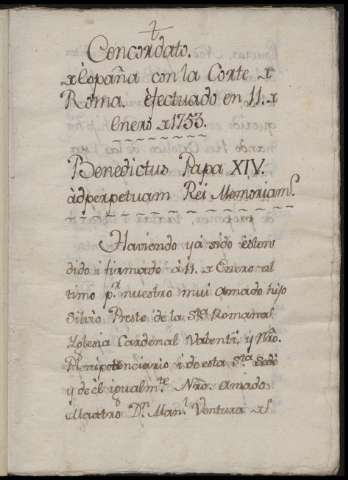 Concordato.
x España con la Corte x
Roma. efectuado en 11. x
Enero x 1753.
Benedictus Papa XIV.
ad perpetuam Rei Memoriam.
Haviendo yá sido esten
dido i firmado á 11. x Enero ul
timo pr. nuestro mui amado hijo
Silvio Presto de la Sta. Romana
Yglesia Cardenal Valenti, y Nro.
Plenipotenciario i de esta Sta. Sede
y de el igualmte. Nro. amado
Maestro Dn. Manl. Ventura